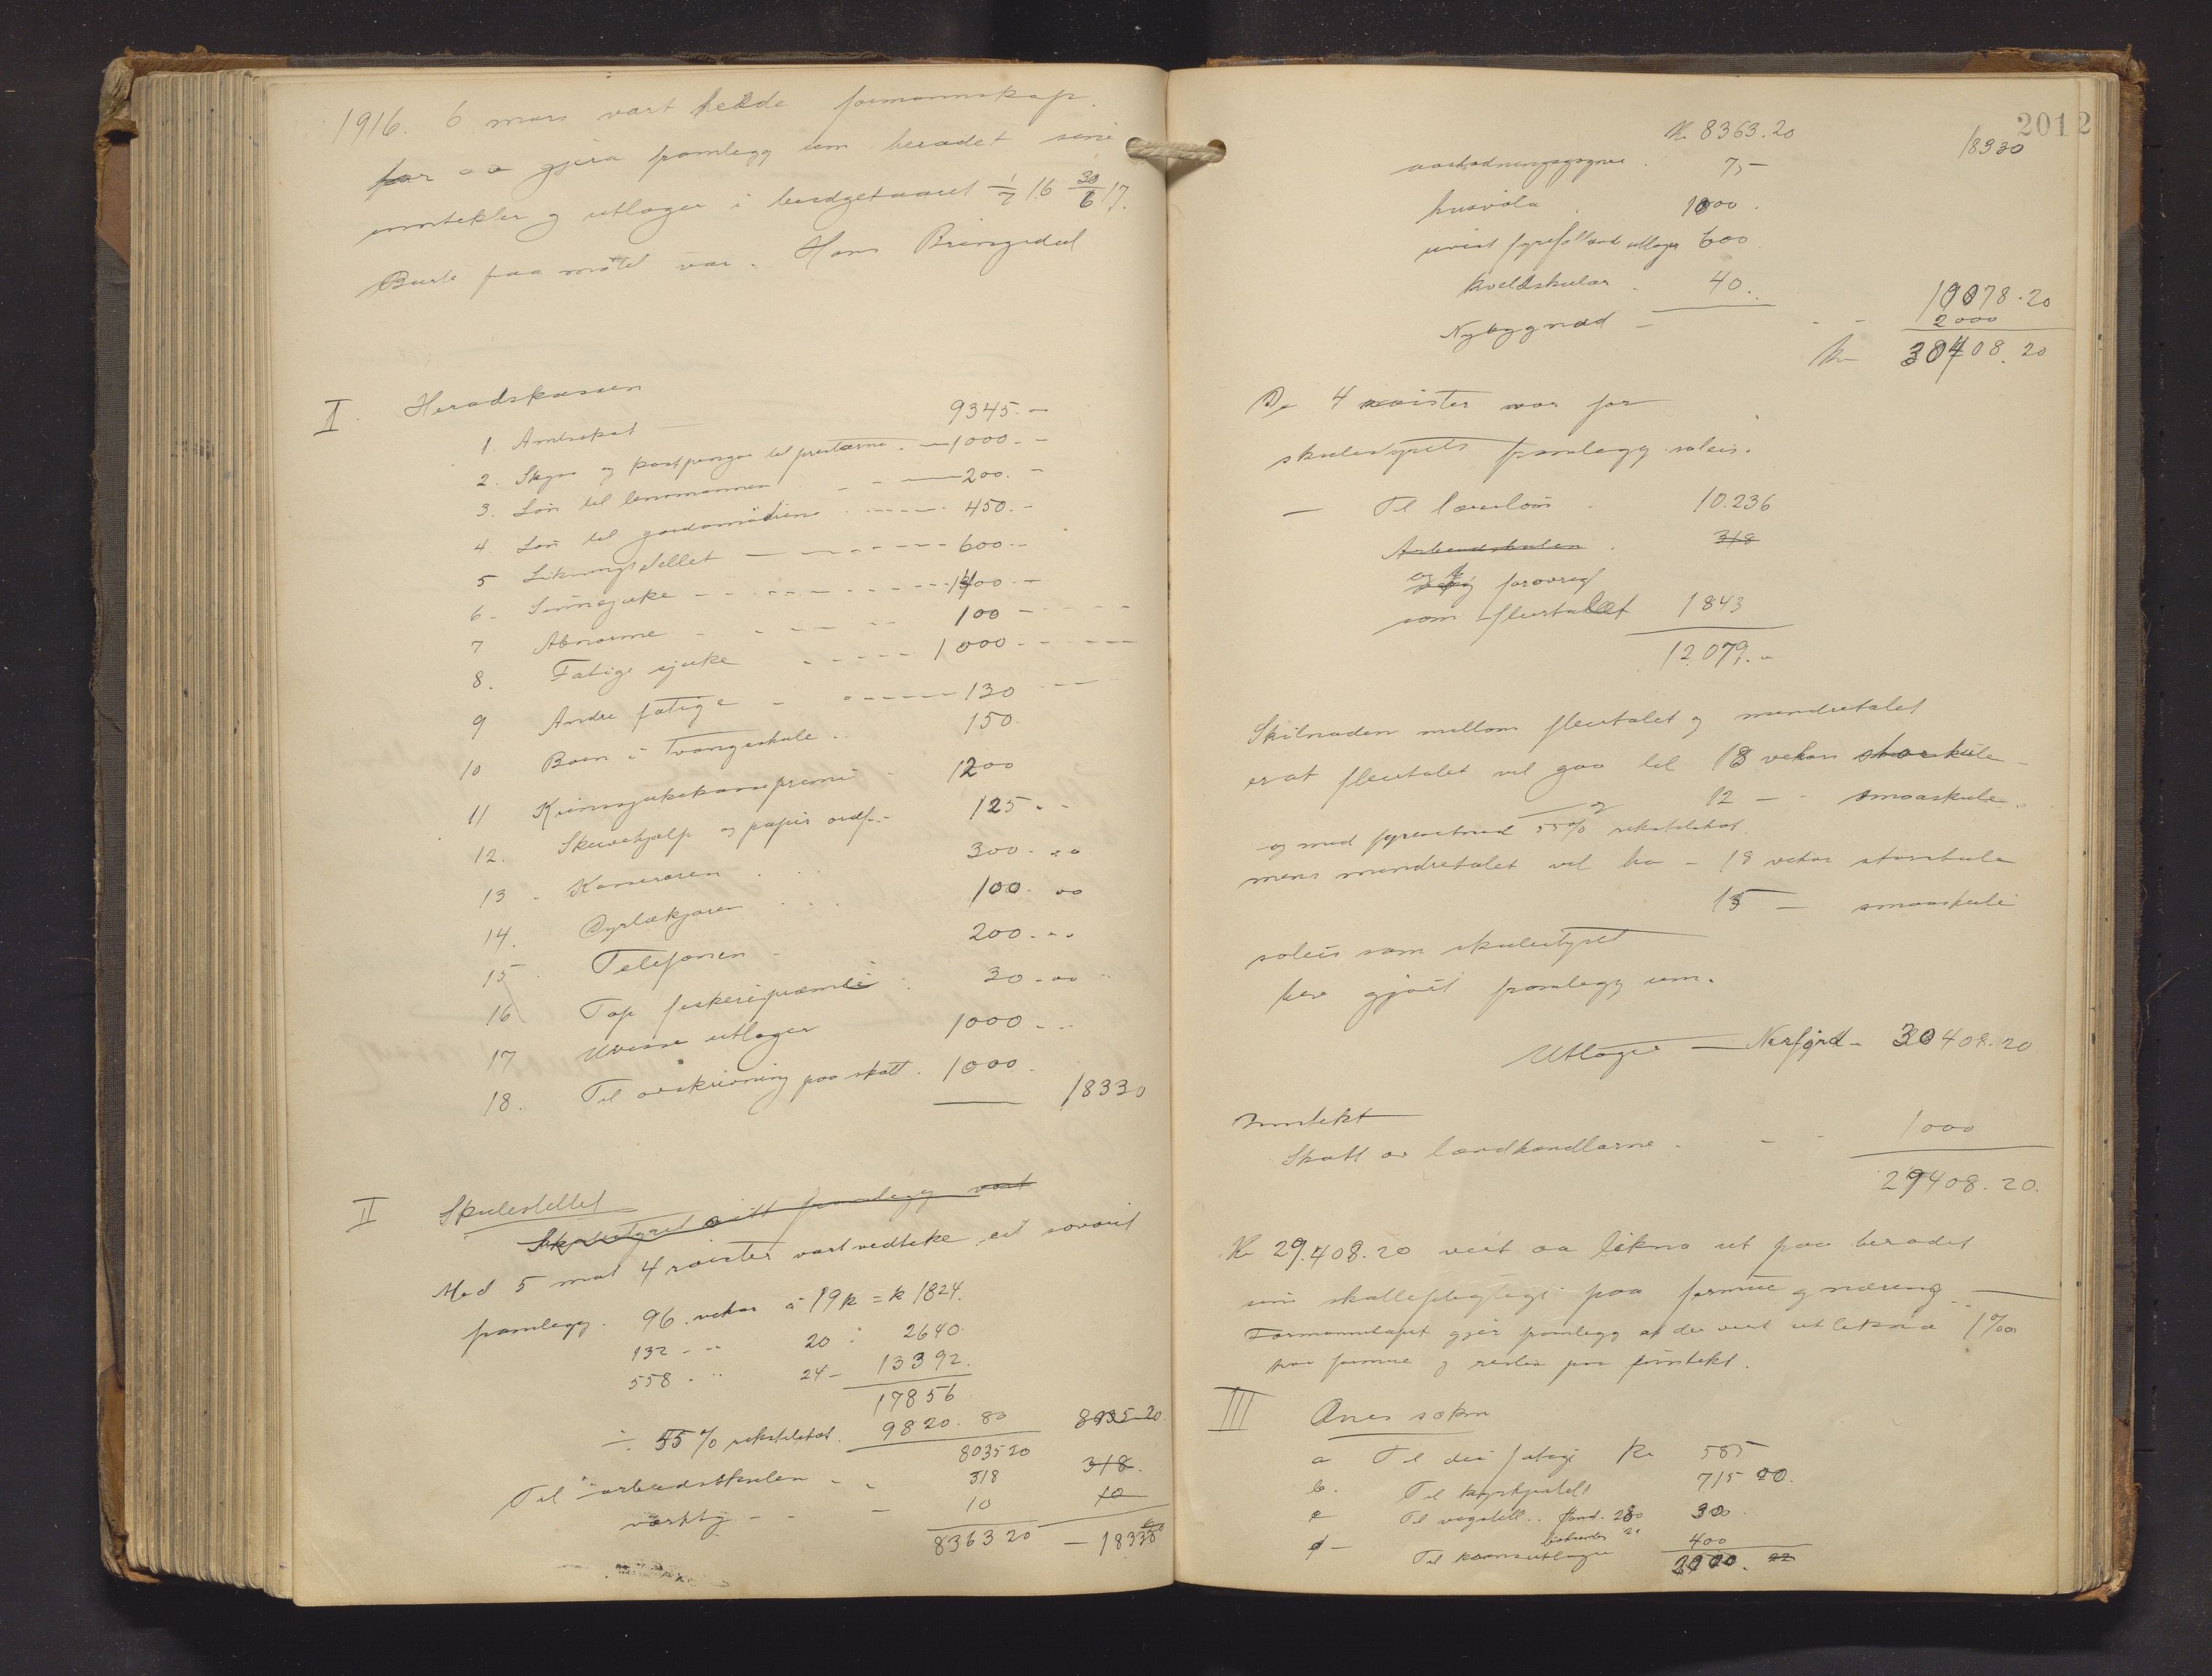 1916. 6 mars vart helde formannskap
for aa gjera framlegg um heradet sine
inntekter og utlagor i budgetaaret 1/7 16 30/6 17.
Burte paa mötet var. Hans Bringedal
I. Heradskassen
1. Amtsskat 9345.-
2. Skyss og kostpengar til prestarne. 1000.-
3. Løn til lensmannen 200.-
4. Løn til jordmödrene 450.-
5 Likningstellet 600.-
6. Sinnsjuke 1400.-
7 Abnorme 100
8. Fatige sjuke 1000
9 Andre fatige 130
10 Born i Tvangsskule 150.
11 Krinssjukekassepremi 1200
12. Skrivehjelp og papir ordf. 125.-
13 Kasseraren 300.
14. Dyrlækjaren 100.
15 Telefonen 200.
16 Tap fiskeripræmie 30
17 Uvisse utlagor 1000
18. Til avskrivning paa skatt. 1000. 18330
II Skulestellet
Skulestyret sitt framlegg vart
Med 5 mot 4 røister vart vedteke eit sovorit
framlegg. 96 vekor á 19 k = k 1824.
132 - " 20 : 2640.
558 - " 24 - 13392.
17856
÷ 55 % rikstilskot. 9820.80 8035.20
803520
Til arbeidsskulen 318 318.
verkty 10 10
836320 - 18330
2012
Kr 8363.20 18330
75-
husvola 1000.
uvist fyrefallande utlagor 600
kveldskular 40. 10078.20
Nybygnad - 2000
Kr 30408.20
De 4 røister var for
skulestyrets framlegg soleis.
- Til lærerløn 10.236
Arbeidsskulen 318
og forøvrig
som fleirtallet 1843
12079.-
Skilnaden millom fleirtalet og mindretalet
er at fleirtalet vil gaa til 18 vekor storskule
og 12 - smaaskule
og med fyresetnad 55% rikstilskot.
mens mindretalet vil ha - 18 vekor storskule
15 - smaaskule
soleis som skulestyret
hev gjört framlegg um.
Utlagor - 30408.20
Inntekt
Skatt av landhandlarne - 1000
29408.20.
Kr 29.408.20 vert aa likna ut paa heradet
sine skattepligtige paa formue og næring
Formannskapet gjer framlegg at det vert utlikna 1‰
paa formue og resten paa inntekt.
III Ones sokn
a Til dei fatige Kr 585
b. Til kyrkjestell 715 20.
c Til vegstell.. 300
d - Til 400
2000.